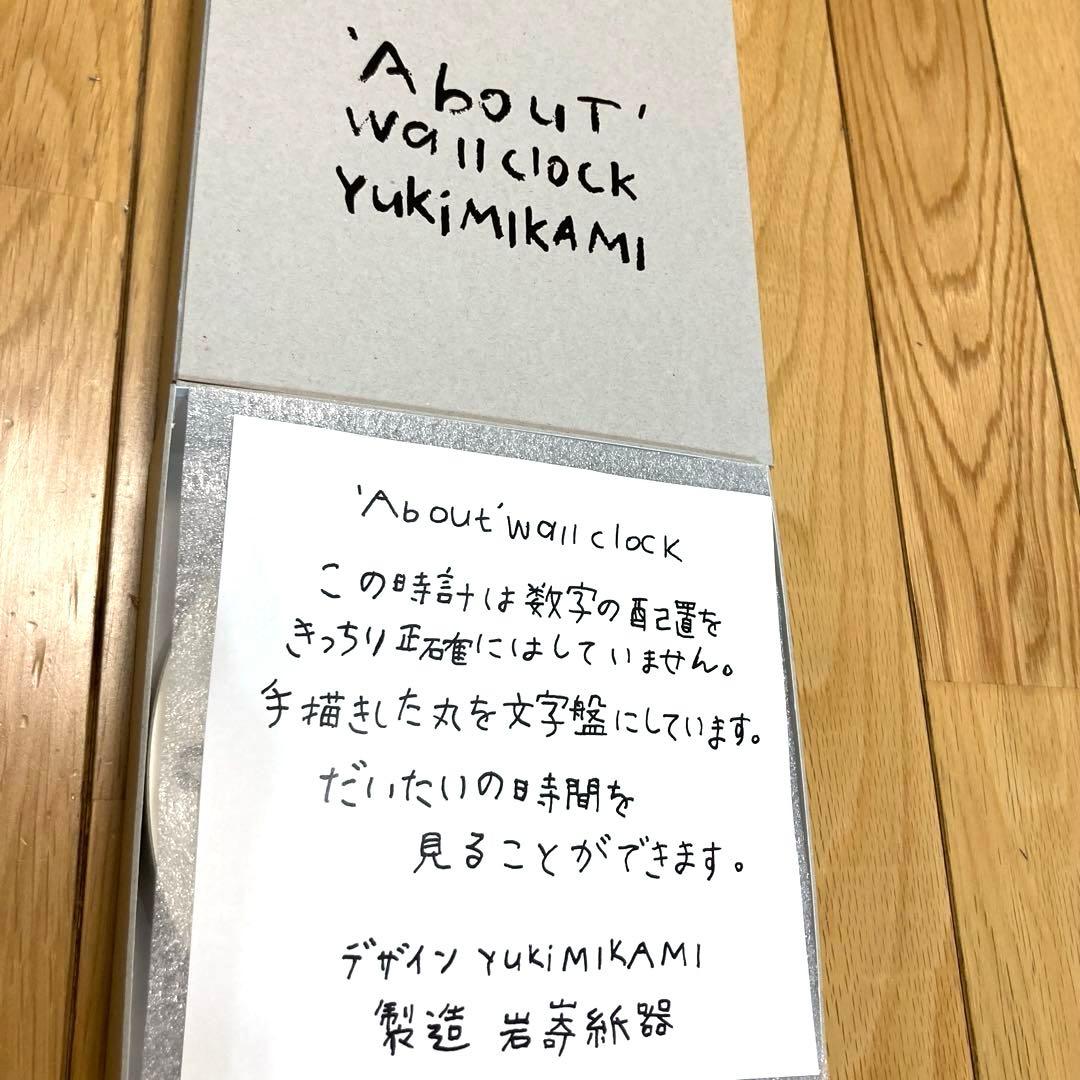 'AbouT'
wall clock
YukiMIKAMI
'About' wall clock
この時計は数字の配置を
きっちり正確にはしていません。
手描きした丸を文字盤にしています。
だいたいの時間を
見ることができます。
デザイン YukiMIKAMI
製造 岩嵜紙器